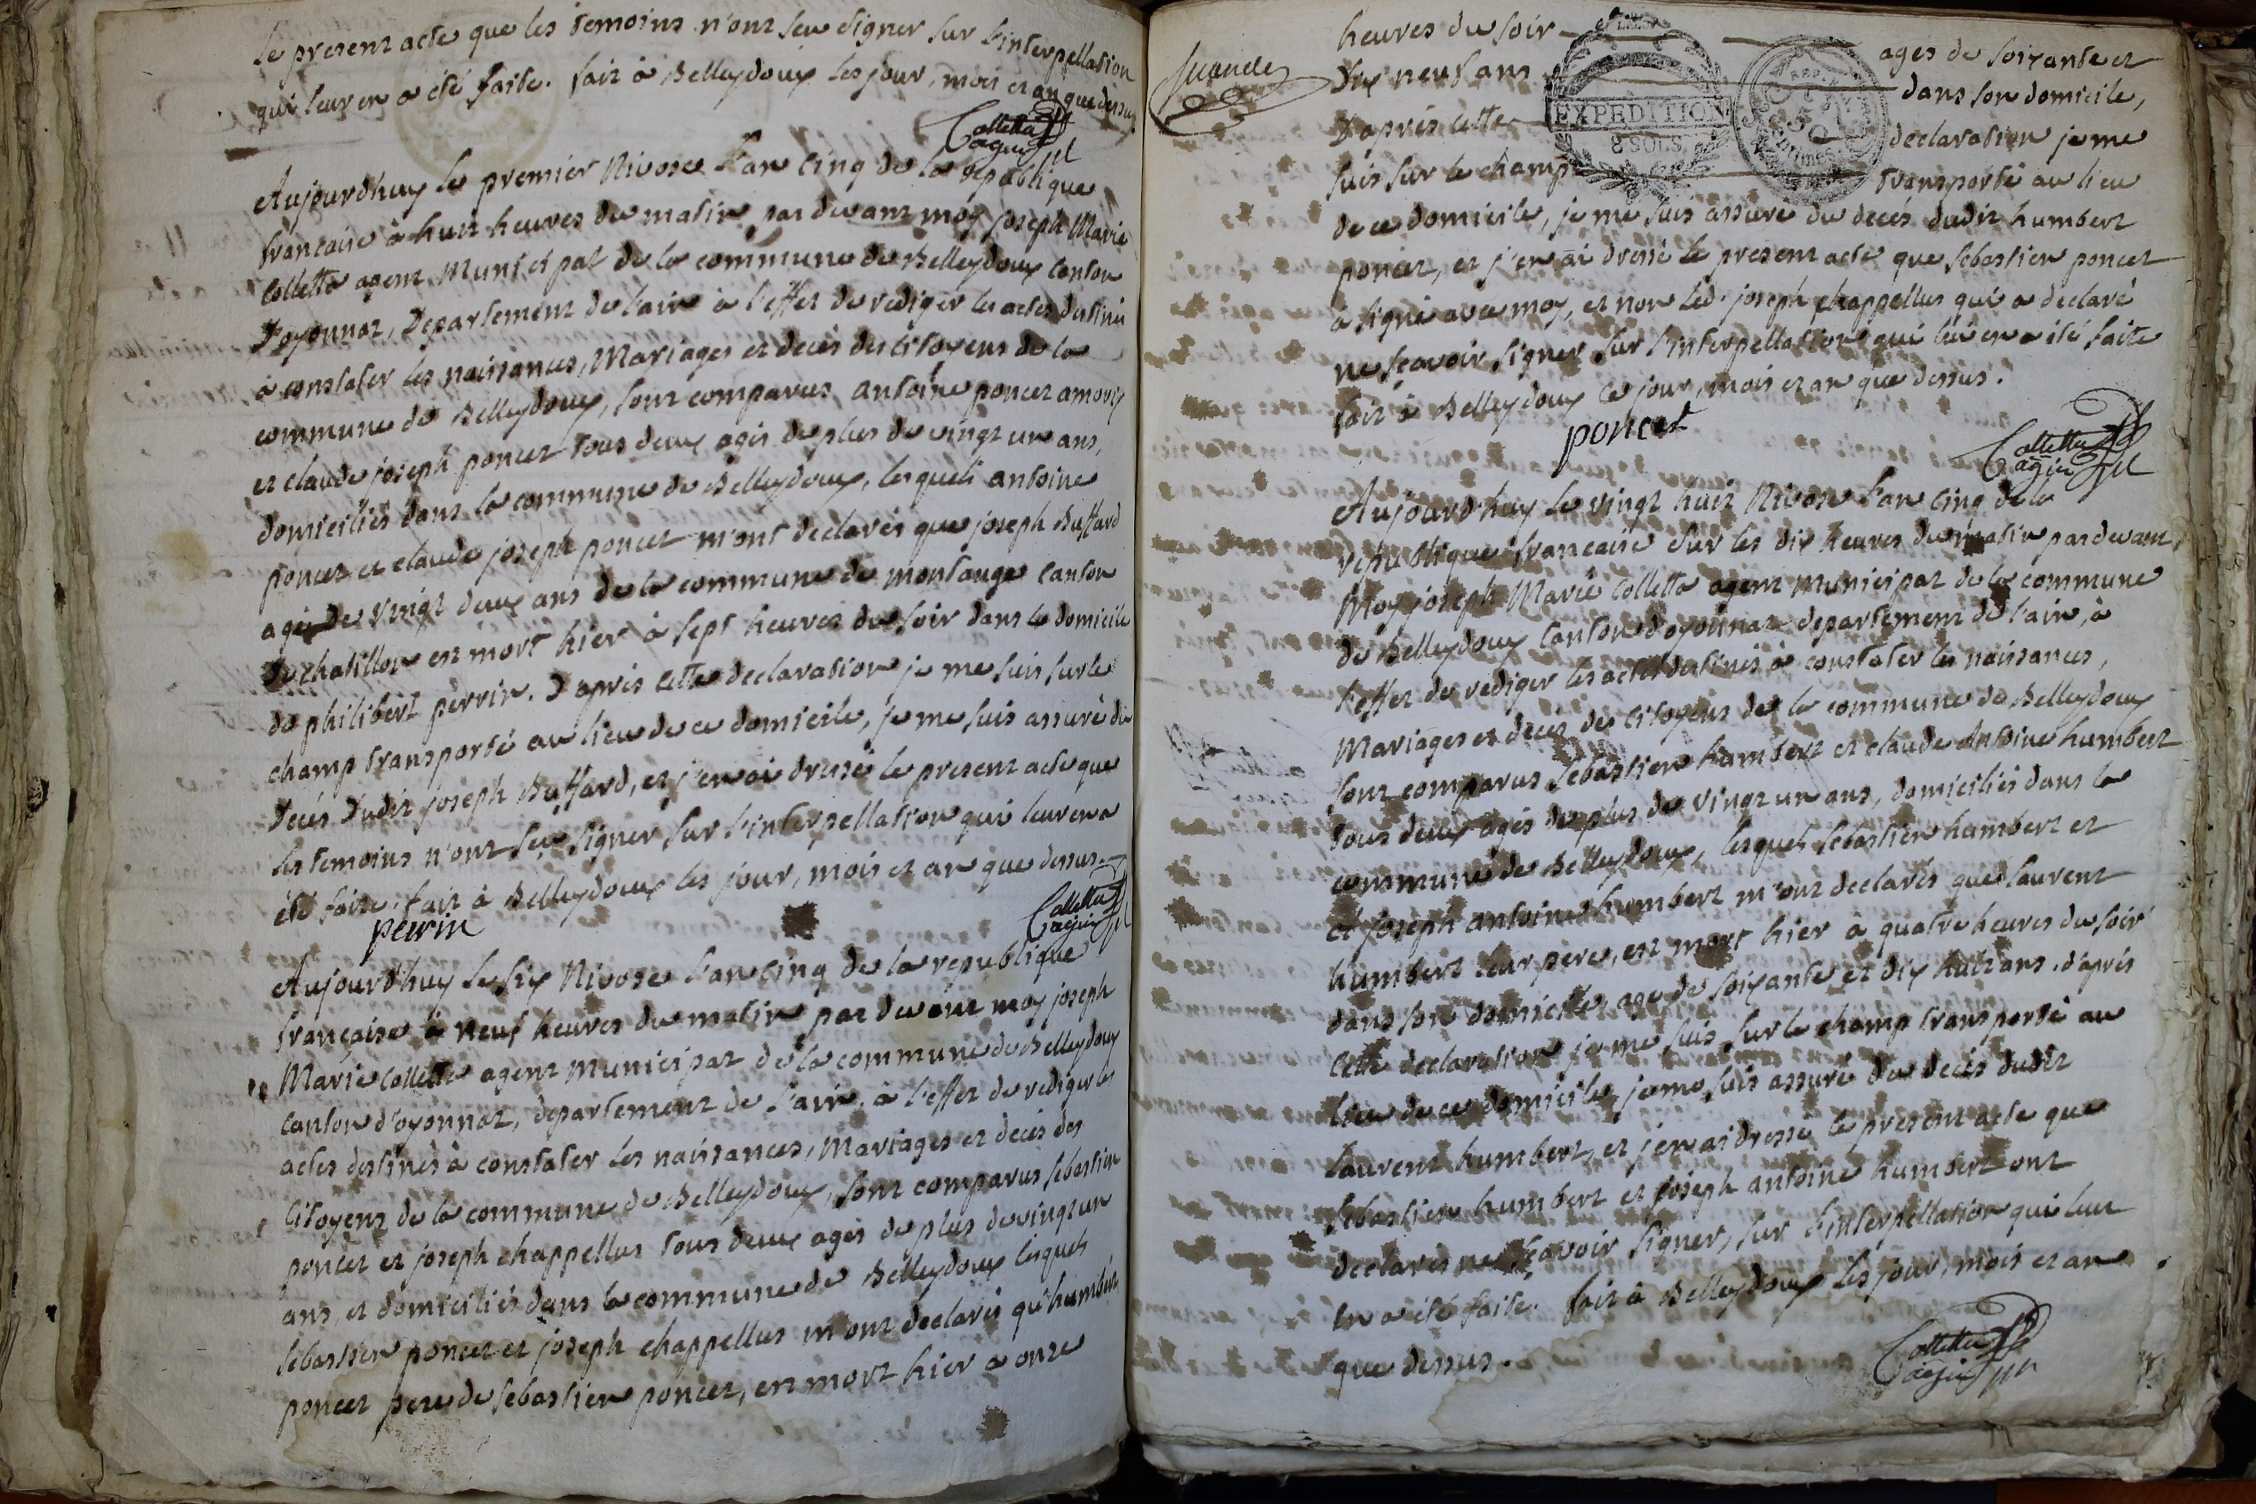 le present acte que les temoins n'ont seu signer sur l'interpellation
qui leur en a été faite. fait à Belleydoux les jour, mois et an que dessus
Colletta
agent
Aujourd'huy le premier Nivose l'an cinq de la republique
francaise à huit heures du matin par devant moy joseph Marie
Colletta agent Municipal de la commune de Belleydoux canton
d'oyonnaz, departement de l'ain à l'effet de rediger les actes destinés
à constater les naissances, Mariages et decès des citoyens de la
commune de Belleydoux, sont comparus antoine poncet amoris
et claude joseph poncet tous deux agés de plus de vingt un ans,
domiciliés dans la commune de Belleydoux, lesquels antoine
poncet et claude joseph poncet m'ont declarés que joseph Buffard
agé de vingt deux ans de la commune de montange canton
de chatillon est mort hier à sept heures du soir dans le domicile
de philibert perrin. d'après cette declaration je me suis sur le
champ transporté au lieu de ce domicile, je me suis assuré du
decès dudit joseph Buffard, et j'en ai dressé le present acte que
les temoins n'ont seu signer sur l'interpellation qui leur en a
été faite. fait à Belleydoux les jour, mois et an que dessus.
perrin
Colletta
agent
Aujourd'huy le six Nivose l'an cinq de la republique
française à neuf heures du matin par devant moy joseph
Marie Colletta agent Municipal de la commune de Belleydoux
canton d'oyonnaz, departement de l'ain. à l'effet de rediger les
actes destinés à constater les naissances, Mariages et decès des
Citoyens de la commune de Belleydoux, sont comparus sebastien
poncet et joseph chappellus tous deux agés de plus de vingt un
ans, et domiciliés dans la commune de Belleydoux lesquels
sebastien poncet et joseph chappellus m'ont declarés qu'humbert
poncet pere de sebastien poncet, est mort hier à onze
heures du soir ages de soixante et
dix neuf ans dans son domicile,
D'après cette declaration je me
suis sur le champ transporté au lieu
EXPEDITION
8 SOLS.
de ce domicile, je me suis assuré du decés dudit humbert
poncet, et j'en ai dressé le present acte que sebastien poncet
a signé avec moy, et non led. joseph chappellus qui a declaré
ne sçavoir signer sur l'interpellation qui lui en a été faite
fait à Belleydoux ce jour, mois et an que dessus.
poncet
Colletta
agent
Aujourd'huy le vingt huit Nivose l'an cinq de la
republique francaise sur les dix heures du matin par devant
Moy joseph Marie Colletta agent Municipal de la commune
de Belleydoux canton d'oyonnaz departement de l'ain, à
l'effet de rediger les actes destinés à constater les naissances,
Mariages et decès des citoyens de la commune de Belleydoux
sont comparus sebastien humbert et claude antoine humbert
tous deux agés de plus de vingt un ans, domiciliés dans la
commune de Belleydoux, lesquels sebastien humbert et
et joseph antoine humbert m'ont declarés que laurent
humbert leur pere, est mort hier à quatre heures du soir
dans son domicile, age de soixante et dix huit ans. d'après
cette declaration je me suis sur le champ transporté au
lieu de ce domicile, je me suis assuré du decès dudit
laurent humbert, et j'en ai dressé le present acte que
sebastien humbert et joseph antoine humbert ont
declarés ne sçavoir signer, sur l'interpellation qui leur
en a été faite. fait à Belleydoux les jour, mois et an
que dessus.
Colletta
agent